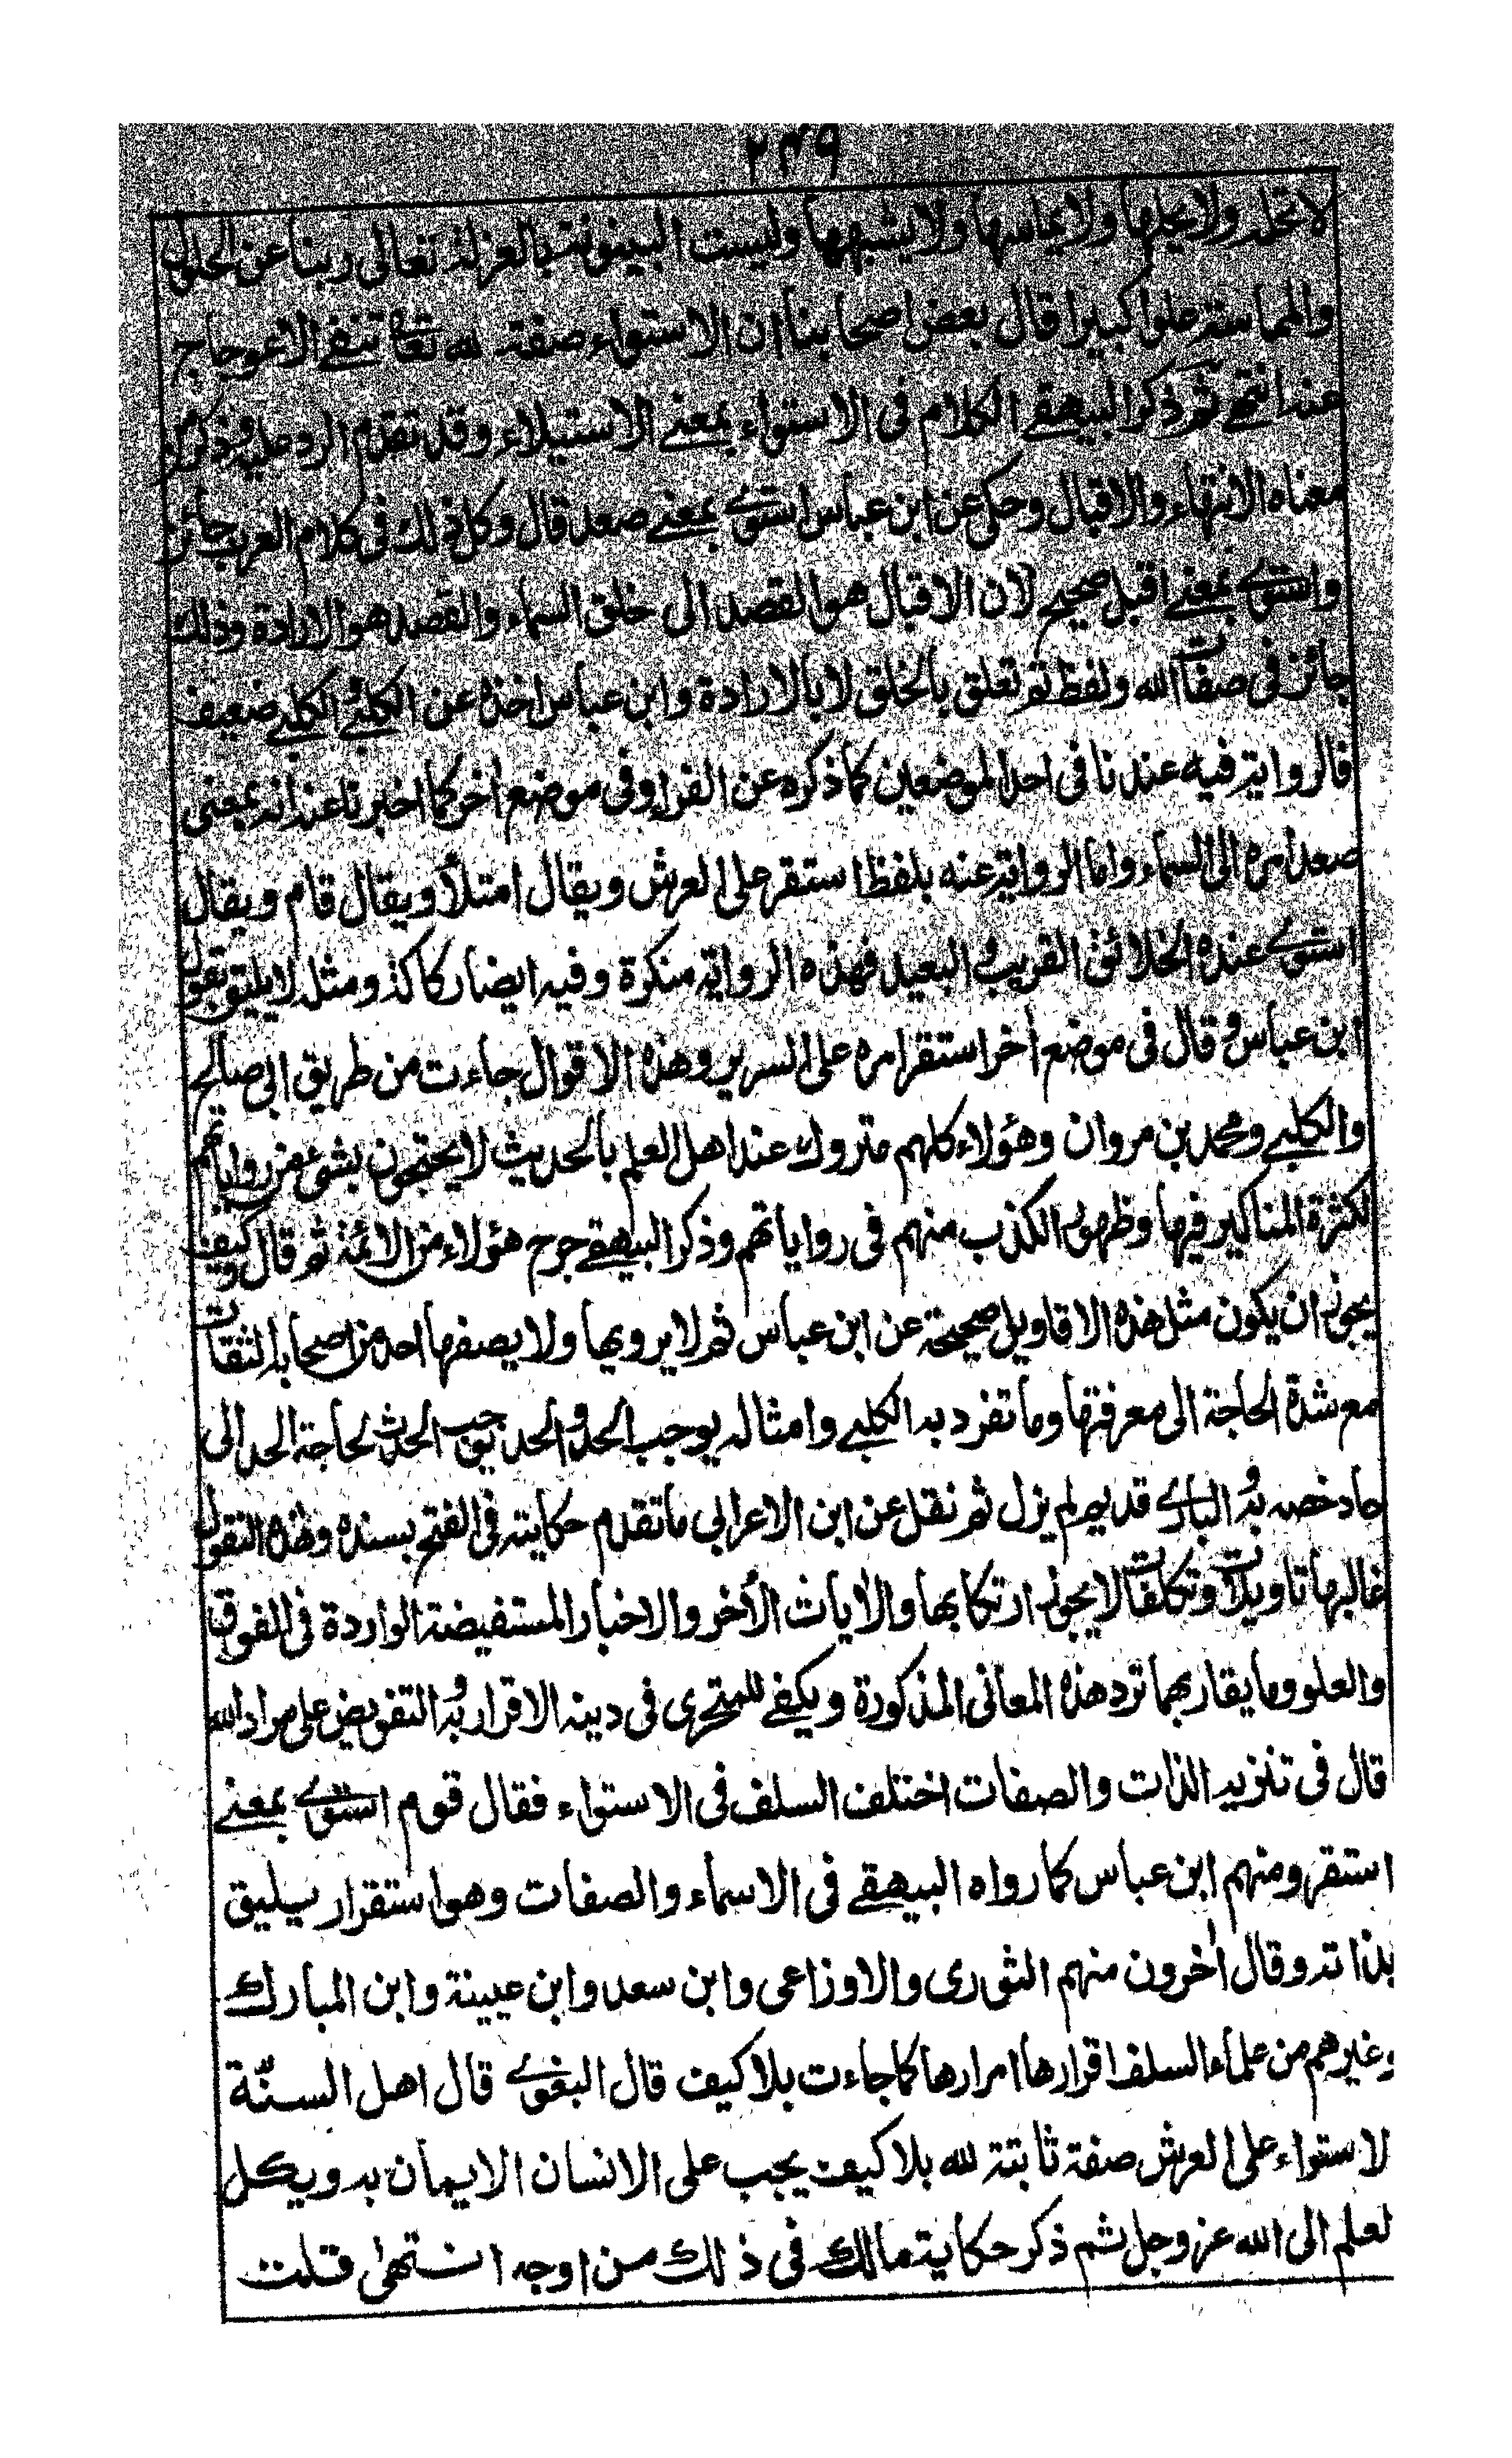 ٢٤٩
لا تحله ولا يحلها ولا يماسها ولا يشبهها وليست البينونة بالعزلة تعالى ربنا عن الحلول
والمماسة علوا كبيرا قال بعض اصحابنا ان الاستواء صفة لله تعا تنفى الاعوجاج
عنه انتهى ثم ذكر البيهقى الكلام فى الاستواء بمعنى الاستيلاء وقد تقدم الرد عليه وذكر
معناه الانتهاء والاقبال وحكى عن ابن عباس استوى بمعنى صعد قال وكل ذلك فى كلام العرب جائز
واستوى بمعنى اقبل صحيح لان الاقبال هو القصد الى خلق السماء والقصد هو الارادة وذلك
جائز فى صفات الله ولفظ ثم تعلق بالخلق لا بالارادة وابن عباس اخذه عن الكلبى والكلبى ضعيف
فالرواية فيه عندنا فى احد الموضعين كما ذكره عن الفراء وفى موضع اخر كما اخبرنا عنه انه بمعنى
صعد امره الى السماء واما الرواية عنه بلفظ استقر على العرش ويقال امتلأ ويقال قام ويقال
استوى عنده الخلائق القريب والبعيد فهذه الرواية منكرة وفيه ايضا ركاكة ومثله لا يليق بقول
ابن عباس وقال فى موضع أخر استقر امره على السرير وهذه الاقوال جاءت من طريق ابى صالح
والكلبى ومحمد بن مروان وهؤلاء كلهم متروك عند اهل العلم بالحديث لا يحتجون بشئ من رواياتهم
لكثرة المناكير فيها وظهور الكذب منهم فى رواياتهم وذكر البيهقى جرح هؤلاء من الائمة ثم قال وكيف
يجوز ان يكون مثل هذه الاقاويل صحيحة عن ابن عباس ثم لا يرويها ولا يصفها احد من اصحابه الثقات
مع شدة الحاجة الى معرفتها وما تفرد به الكلبى وامثاله يوجب الحد والحد يوجب الحدث لحاجة الحد الى
حاد خصه به والبارى قديم لم يزل ثم نقل عن ابن الاعرابى ما تقدم حكايته فى الفتح بسنده وهذه النقول
غالبها تاويلات وتكلفات لا يجوز ارتكابها والأيات الأخر والاخبار المستفيضة الواردة فى الفوق
والعلو وما يقاربهما ترد هذه المعانى المذكورة ويكفى للمتحرى فى دينه الاقرار به والتفويض على مراد الله
قال فى تنزيه الذات والصفات اختلف السلف فى الاستواء فقال قوم استوى بمعنى
استقر ومنهم ابن عباس كما رواه البيهقى فى الاسماء والصفات وهو استقرار يليق
بذاته وقال أخرون منهم الثورى والاوزاعى وابن سعد وابن عيينة وابن المبارك
وغيرهم من علماء السلف اقرارها امرارها كما جاءت بلا كيف قال البغوى قال اهل السنّة
لاستواء على العرش صفة ثابتة لله بلا كيف يجب على الانسان الايمان به ويكل
لعلم الى الله عز وجل ثم ذكر حكاية مالك فى ذلك من اوجه انتهى قلت